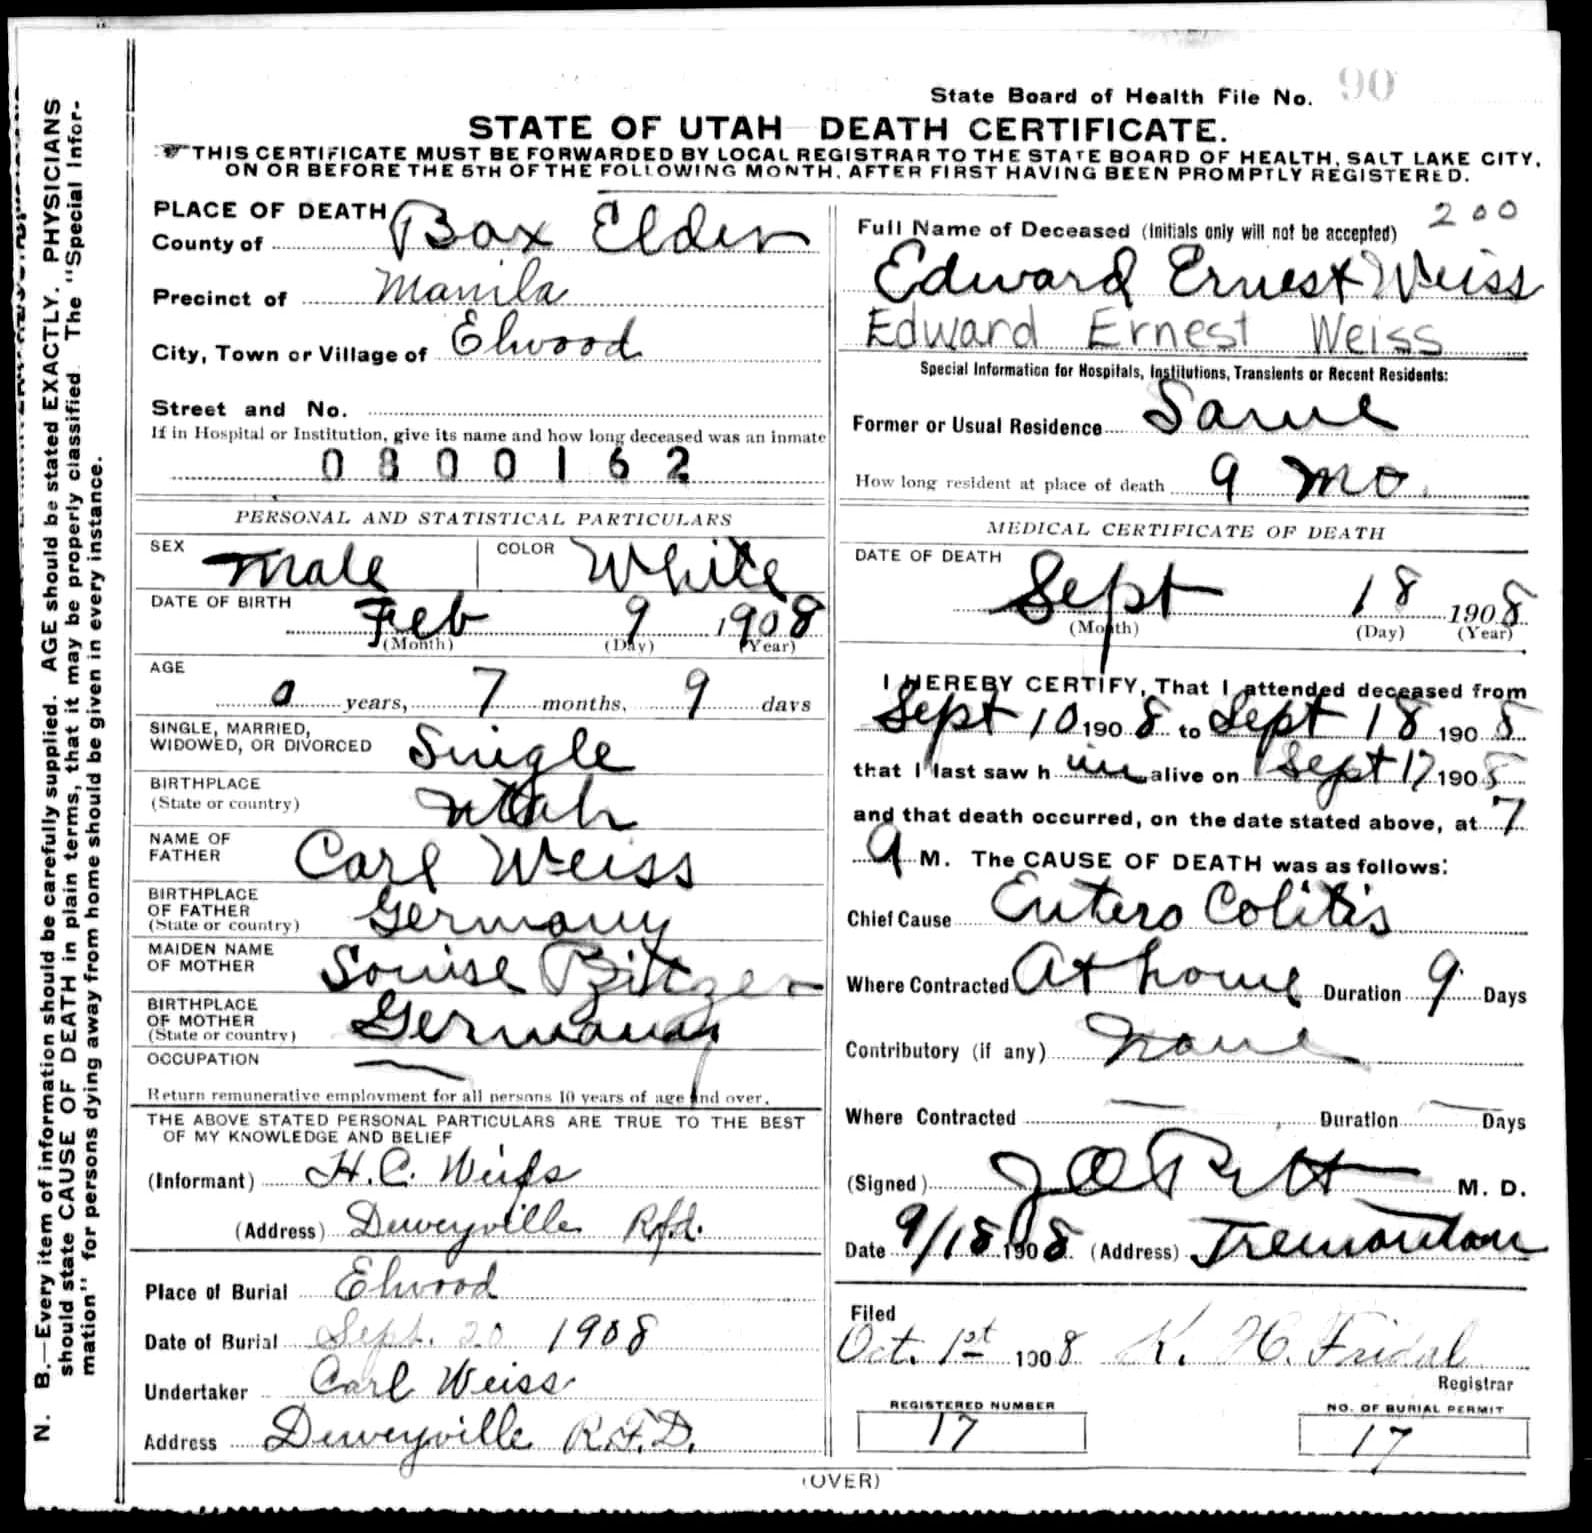 State Board of Health File No. 90
STATE OF UTAH DEATH CERTIFICATE.
THIS CERTIFICATE MUST BE FORWARDED BY LOCAL REGISTRAR TO THE STATE BOARD OF HEALTH, SALT LAKE CITY,
ON OR BEFORE THE 5TH OF THE FOLLOWING MONTH, AFTER FIRST HAVING BEEN PROMPTLY REGISTERED.
N. B.—Every item of information should be carefully supplied. AGE should be stated EXACTLY. PHYSICIANS
should state CAUSE OF DEATH in plain terms, that it may be properly classified. The "Special Infor-
mation" for persons dying away from home should be given in every instance.
PLACE OF DEATH
County of Box Elder
Precinct of Manila
City, Town or Village of Elwood
Street and No.
If in Hospital or Institution, give its name and how long deceased was an inmate
0800162
PERSONAL AND STATISTICAL PARTICULARS
SEX Male COLOR White
DATE OF BIRTH Feb 9 1908
(Month) (Day) (Year)
AGE
0 years, 7 months, 9 days
SINGLE, MARRIED,
WIDOWED, OR DIVORCED Single
BIRTHPLACE
(State or country) Utah
NAME OF
FATHER Carl Weiss
BIRTHPLACE
OF FATHER
(State or country) Germany
MAIDEN NAME
OF MOTHER Louise Bitzer
BIRTHPLACE
OF MOTHER
(State or country) Germany
OCCUPATION —
Return remunerative employment for all persons 10 years of age and over.
THE ABOVE STATED PERSONAL PARTICULARS ARE TRUE TO THE BEST
OF MY KNOWLEDGE AND BELIEF
(Informant) H. C. Weiss
(Address) Deweyville Rfd.
Place of Burial Elwood
Date of Burial Sept. 20 1908
Undertaker Carl Weiss
Address Deweyville R.F.D.
200
Full Name of Deceased (Initials only will not be accepted)
Edward Ernest Weiss
Edward Ernest Weiss
Special Information for Hospitals, Institutions, Transients or Recent Residents:
Former or Usual Residence Same
How long resident at place of death 9 mo
MEDICAL CERTIFICATE OF DEATH
DATE OF DEATH
Sept 18 1908
(Month) (Day) (Year)
I HEREBY CERTIFY, That I attended deceased from
Sept 10 1908 to Sept 18 1908
that I last saw h im alive on Sept 17 1908
and that death occurred, on the date stated above, at 7
a M. The CAUSE OF DEATH was as follows:
Chief Cause Entero Colitis
Where Contracted At home Duration 9 Days
Contributory (if any) None
Where Contracted — Duration — Days
(Signed) M. D.
Date 9/18 1908 (Address) Tremonton
Filed
Oct. 1st 1908 K. H. Fridal
Registrar
REGISTERED NUMBER
17
NO. OF BURIAL PERMIT
17
(OVER)